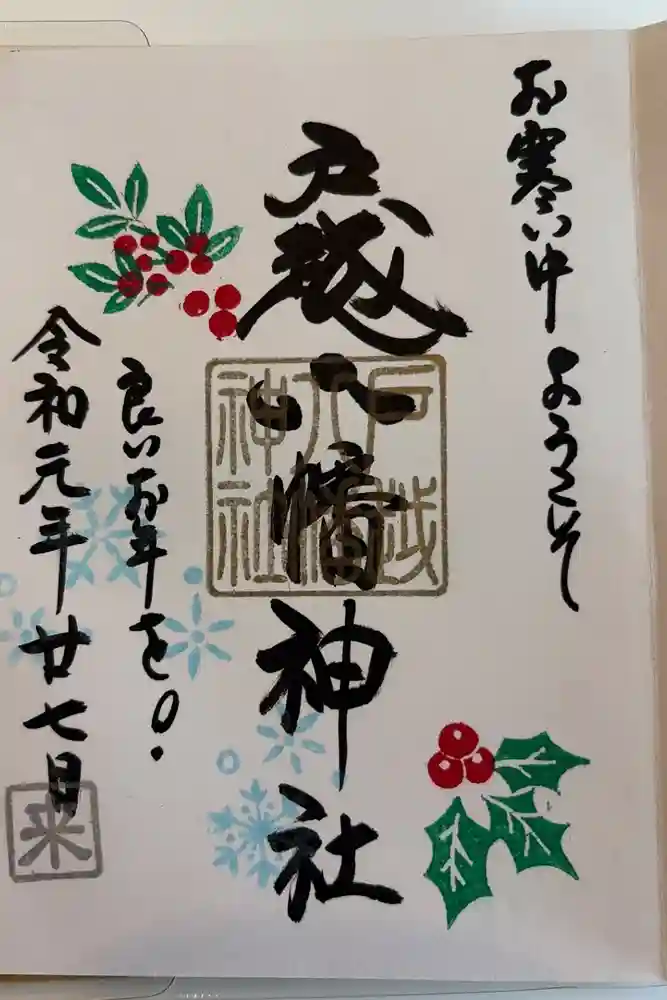 お寒い中ようこそ
戸越八幡神社
戸越
八幡
神社
良いお年を!
令和元年廿七日
来